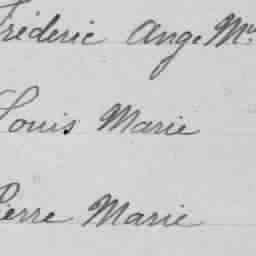 Fréderic Ange Mie
Louis Marie
Pierre Marie